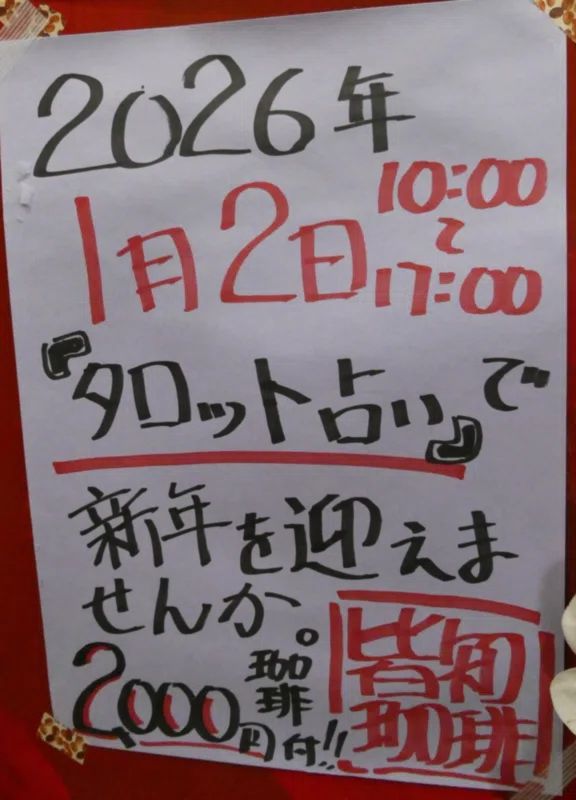 2026年
1月2日 10:00
〜
17:00
『タロット占い』で
新年を迎えま
せんか。
2,000円
珈琲
付!!
皆旬
珈琲